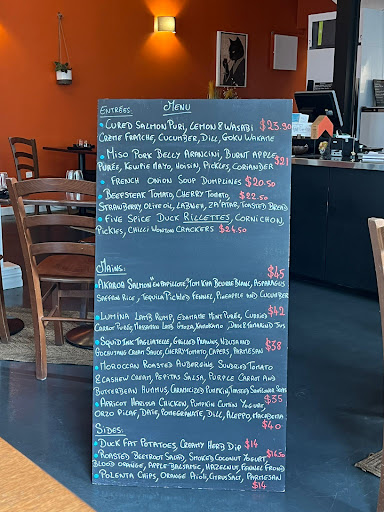 Entrées: Menu
• Cured Salmon Puri, Lemon & Wasabi $23.90
Crème Fraîche, Cucumber, Dill, Goku Wakame
• Miso Pork Belly Arancini, Burnt Apple $21
Purée, Kewpie Mayo, Hoisin, Pickles, Coriander
• French Onion Soup Dumplings $20.50
• Beefsteak Tomato, Cherry Tomato, $22.50
Strawberry, Olive Oil, Labneh, Za'atar, Toasted Bread
• Five Spice Duck Rillettes, Cornichon,
Pickles, Chilli Wonton Crackers $24.50
Mains: $45
• Akaroa Salmon "en Papillote", Tom Kha Beurre Blanc, Asparagus
Saffron Rice, Tequila Pickled Fennel, Pineapple and Cucumber
• Lumina Lamb Rump, Edamame Mint Purée, Curried $42
Carrot Purée, Massaman Lamb Gyoza, Date & Tamarind Jus
• Squid Ink Tagliatelle, Grilled Prawns, Nduja and
Gochujang Cream Sauce, Cherry Tomato, Capers, Parmesan $38
• Moroccan Roasted Aubergine, Sundried Tomato
& Cashew Cream, Pepitas Salsa, Purple Carrot and
Butterbean Hummus, Caramelized Pumpkin, Toasted Sunflower Seeds
$35
• Apricot Harissa Chicken, Pumpkin Cumin Yogurt,
Orzo Pilaf, Date, Pomegranate, Dill, Aleppo, Macadamia
$40
Sides:
• Duck Fat Potatoes, Creamy Herb Dip $14
• Roasted Beetroot Salad, Smoked Coconut Yogurt $16.50
Blood Orange, Apple Balsamic, Hazelnus, Fennel Frond
• Polenta Chips, Orange Aioli, Citrus Salt, Parmesan
$14